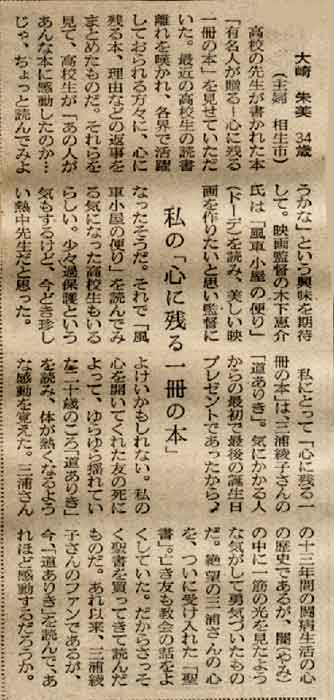 私の「心に残る一冊の本」
大崎 朱美 34歳
(主婦 相生市)
高校の先生が書かれた本
「有名人が贈る―心に残る
一冊の本」を見せていただ
いた。最近の高校生の読書
離れを嘆かれ、各界で活躍
しておられる方々に、心に
残る本、理由などの返事を
まとめたものだ。それらを
見て、高校生が「あの人が
あんな本に感動したのか…
じゃ、ちょっと読んでみよ
うかな」という興味を期待
して。映画監督の木下恵介
氏は「風車小屋の便り」
(ドーデ)を読み、美しい映
画を作りたいと思い監督に
なったそうだ。それで「風
車小屋の便り」を読んでみ
る気になった高校生もいる
らしい。少々過保護という
気もするけど、今どき珍し
い熱中先生だと思った。
私にとって「心に残る一
冊の本」は、三浦綾子さんの
「道ありき」。気にかかる人
からの最初で最後の誕生日
プレゼントであったから、
よけいかもしれない。私の
心を開いてくれた友の死に
よって、ゆらゆら揺れてい
た二十歳のころ「道ありき」
を読み、体が熱くなるよう
な感動を覚えた。三浦さん
の十三年間の闘病生活の心
の歴史であるが、闇(やみ)
の中に一筋の光を見たよう
な気がして勇気づいたもの
だ。絶望の三浦さんの心
を、ついに受け入れた「聖
書」。亡き友も教会の話をよ
くしていた。だからさっそ
く聖書を買ってきて読んだ
ものだ。あれ以来、三浦綾
子さんのファンであるが、
今、「道ありき」を読んで、あ
れほど感動するだろうか。